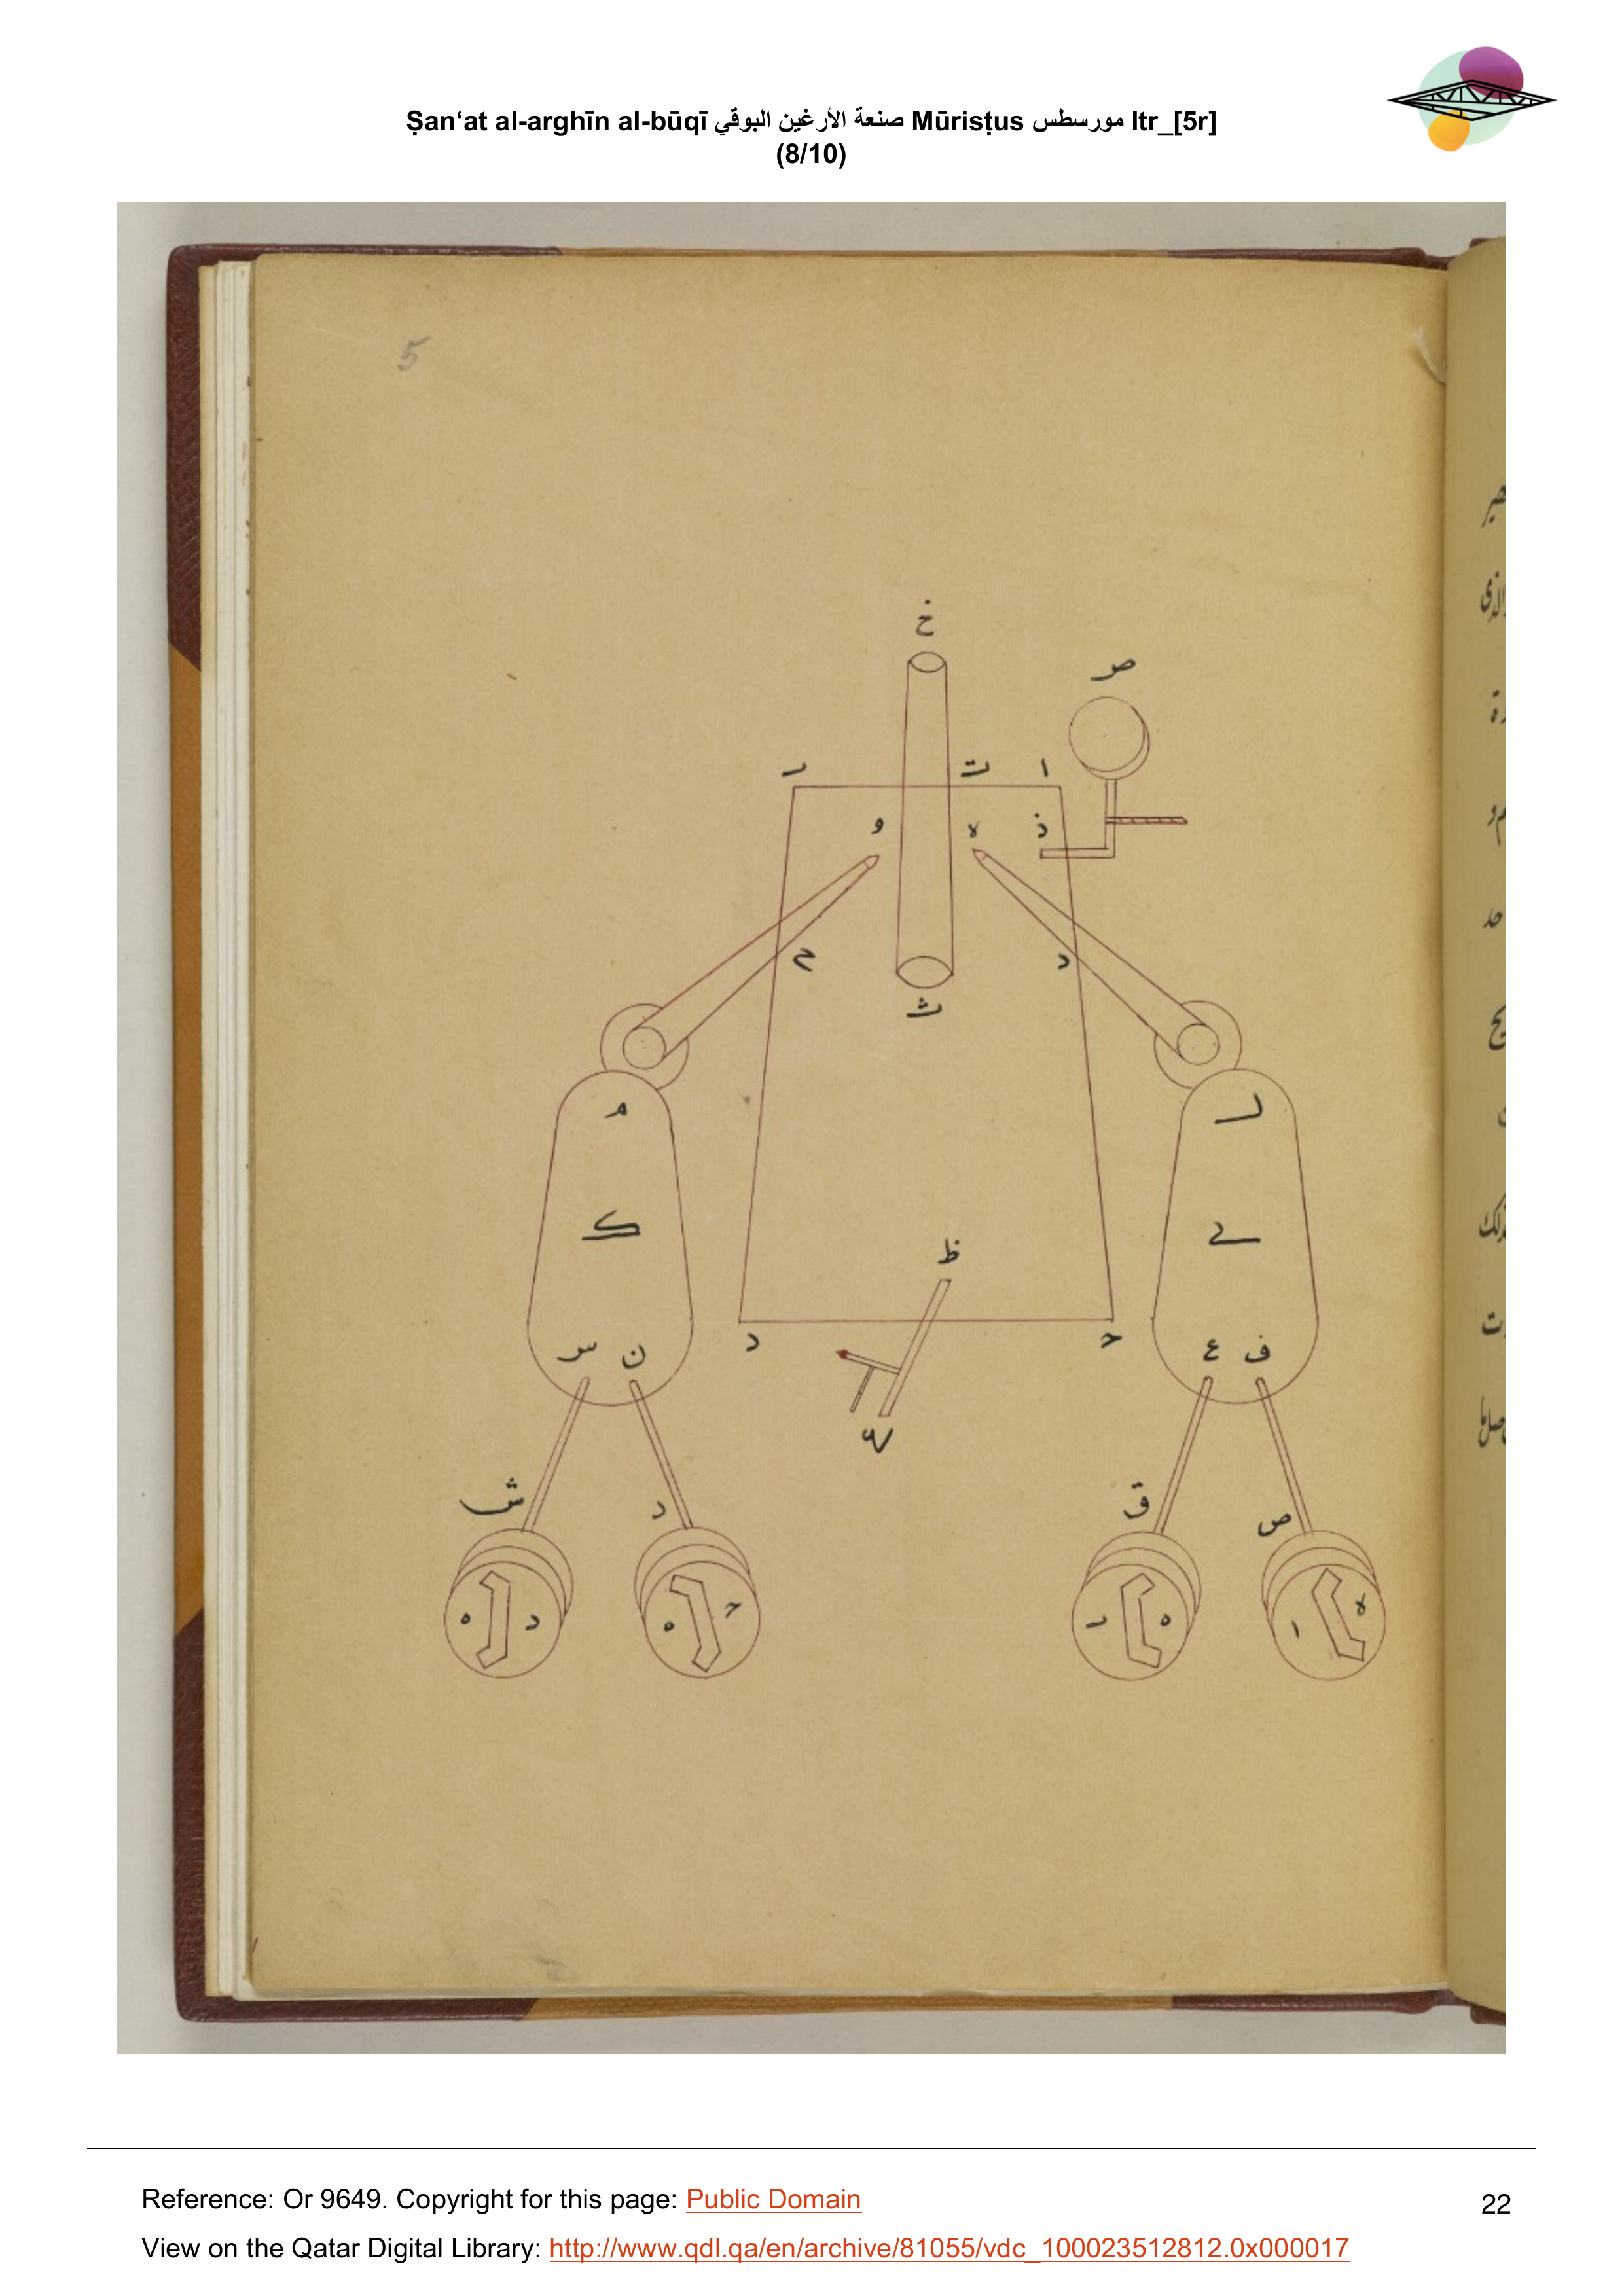 Ṣan‘at al-arghīn al-būqī صنعة الأرغين البوقي Mūrisṭus مورسطس ltr_[5r]
(8/10)
5
خ
ص
ا
و
ذ
ح
د
ث
م
ك
ظ
س
ن
د
ع
ف
ش
د
ق
ص
ه
د
ه
ه
ا
Reference: Or 9649. Copyright for this page: Public Domain
22
View on the Qatar Digital Library: http://www.qdl.qa/en/archive/81055/vdc_100023512812.0x000017